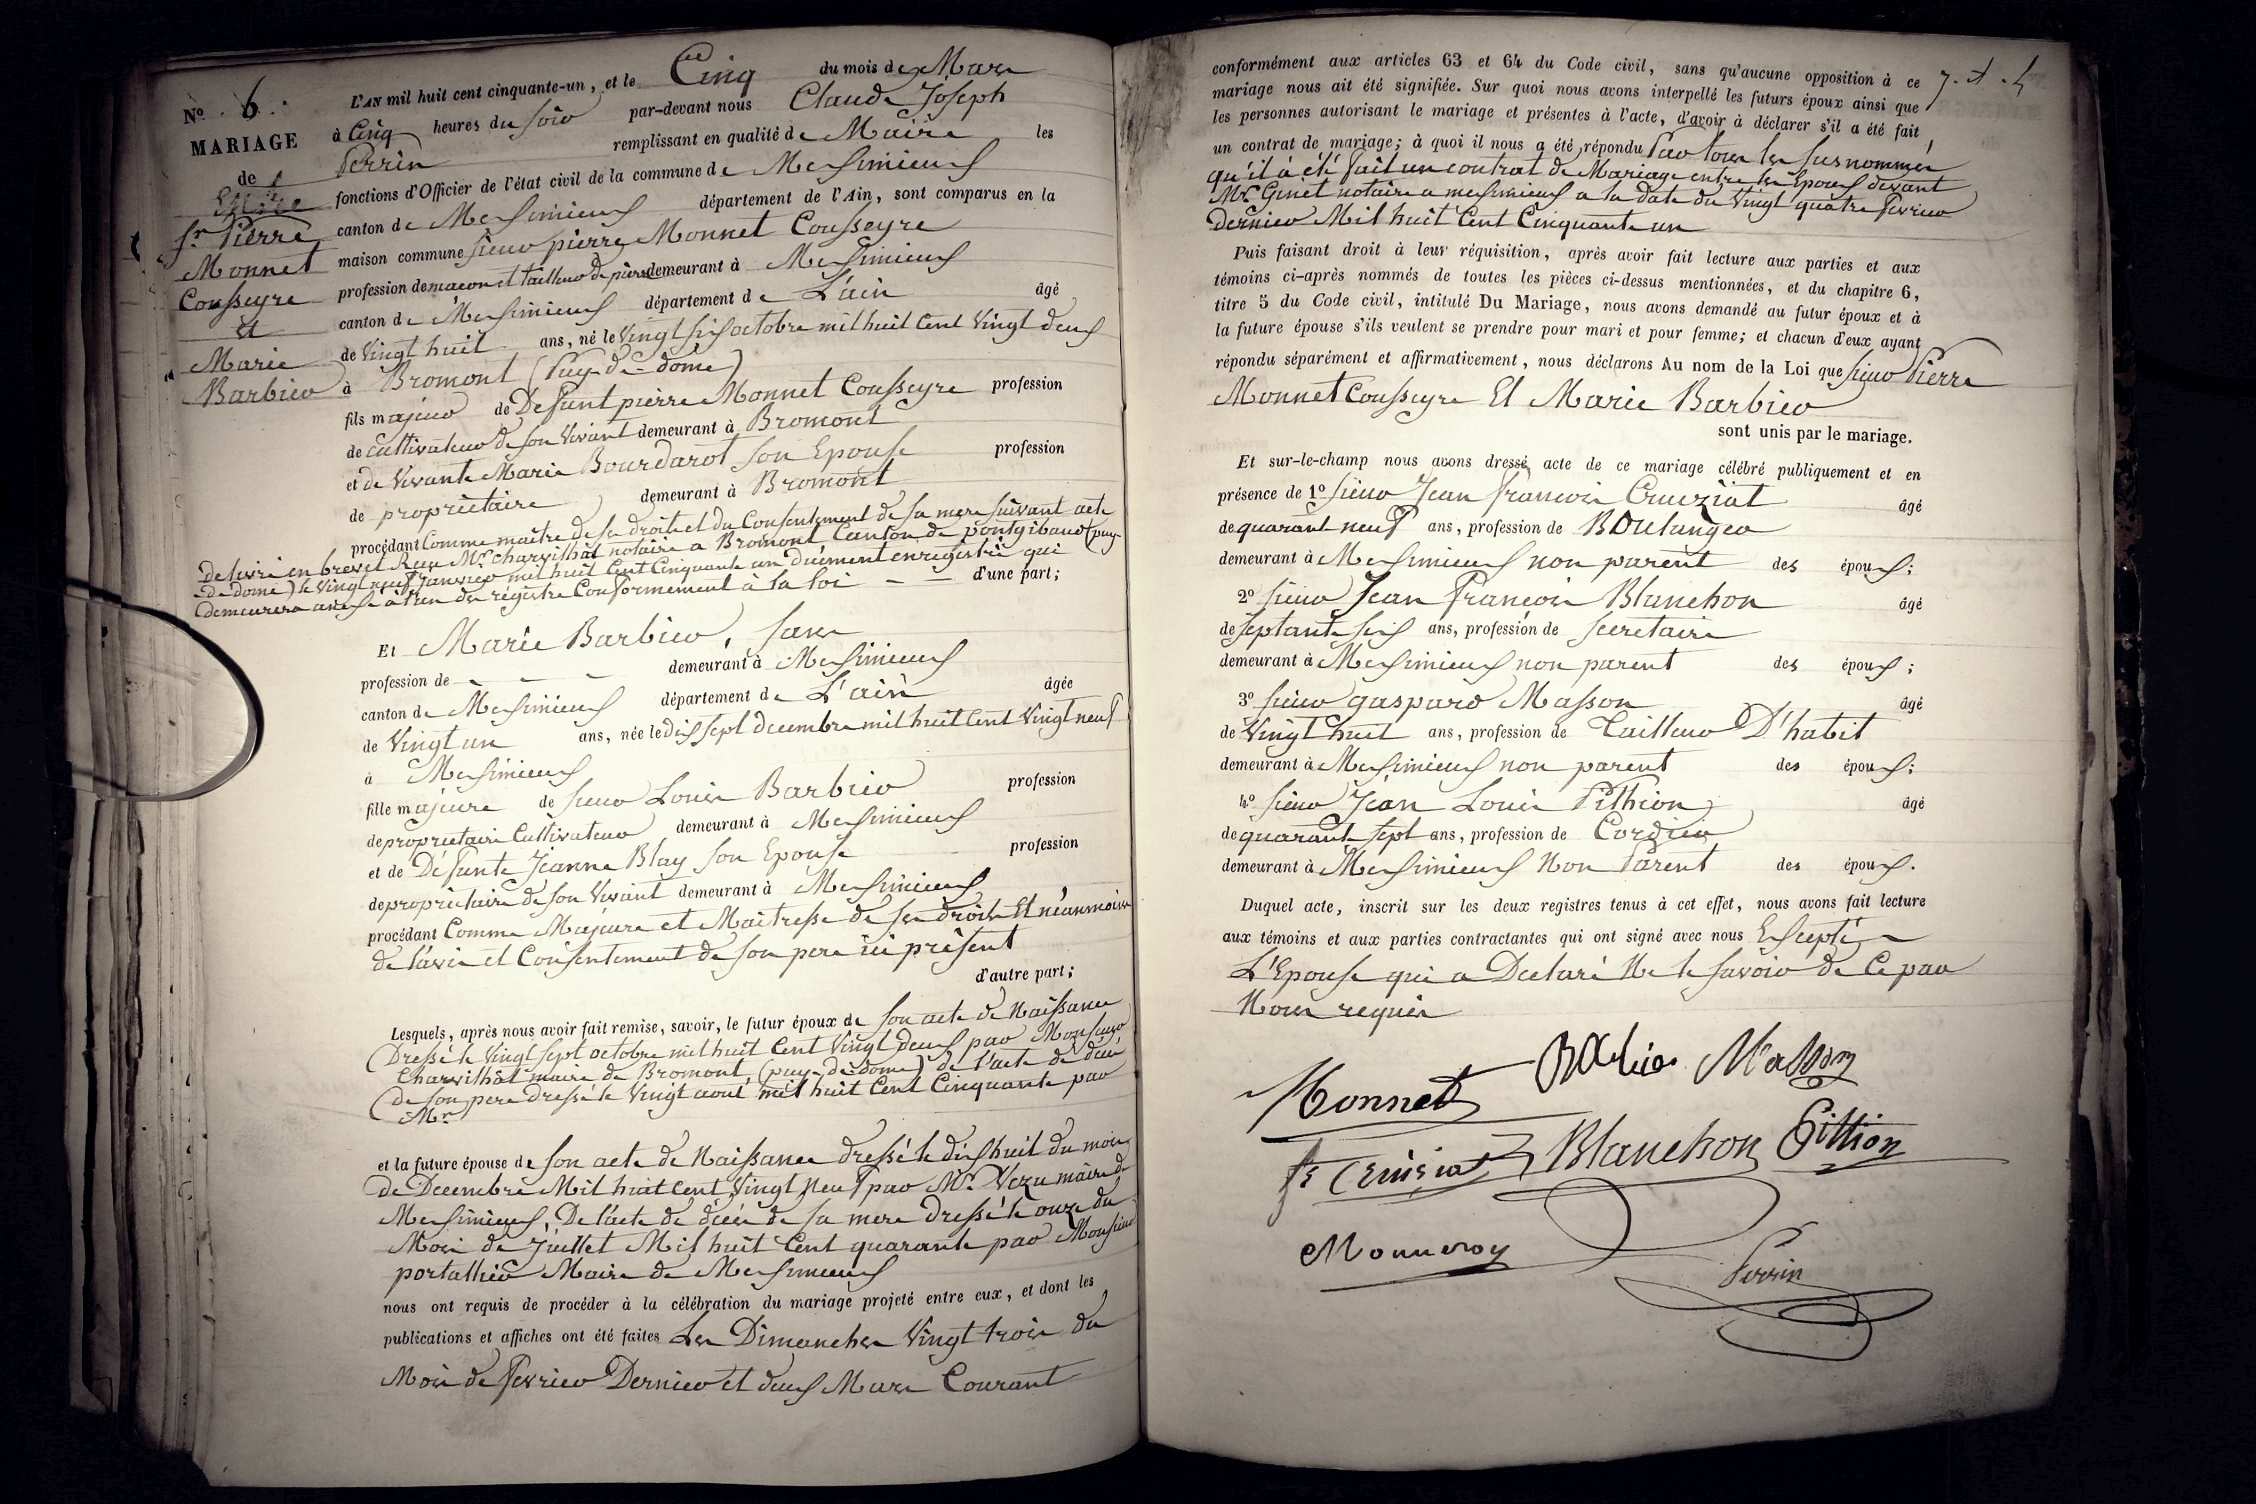 N.º 6.
MARIAGE
de
Sr Pierre
Monnet
Cousseyre
et
Marie
Barbier
L'AN mil huit cent cinquante-un, et le Cinq du mois de Mars
à Cinq heures du soir par-devant nous Claude Joseph
Perrin remplissant en qualité de Maire les
fonctions d'Officier de l'état civil de la commune de Meximieux
canton de Meximieux département de l'Ain, sont comparus en la
maison commune sieur pierre Monnet Cousseyre
profession de macon et tailleur de pierre demeurant à Meximieux
canton de Meximieux département de L'ain âgé
de Vingt huit ans, né le Vingt six octobre mil huit Cent Vingt deux
à Bromont (Puy-de-dome)
fils majeur de Defunt pierre Monnet Cousseyre profession
de cultivateur de son Vivant demeurant à Bromont
et de Vivante Marie Bourdarot son Epouse profession
de propriètaire demeurant à Bromont
procédant Comme maître de ses droits et du Consentement de sa mere suivant acte
delivré en brevet Reçu Mr. Charvilhat notaire a Bromont Canton de pontgibaud (puy-
-de-dome) le Vingt neuf Janvier mil huit Cent Cinquante un duement enregistré qui
demeurera annexé à l'un des registre Conformement à la loi — — d'une part;
Et Marie Barbier, sans
profession de — — — demeurant à Meximieux
canton de Meximieux département de L'ain âgée
de Vingt un ans, née le Dix sept decembre mil huit Cent Vingt neuf
à Meximieux
fille majeure de sieur Louis Barbier profession
de propriétaire Cultivateur demeurant à Meximieux
et de Défunte Jeanne Blay son Epouse profession
de propriétaire de son Vivant demeurant à Meximieux
procédant Comme Majeure et Maitresse de ses droits Et néanmoins
de l'avis et Consentement de son pere ici présent
d'autre part;
Lesquels, après nous avoir fait remise, savoir, le futur époux de son acte de Naissance
(Dressé le Vingt sept octobre mil huit Cent Vingt deux par Monsieur
Charvilhat maire de Bromont, (puy-de-dome) de l'acte de décé
(de son pere dressé le Vingt aout mil huit Cent Cinquante par
Mr.
et la future épouse de son acte de Naissance dressé le dix huit du mois
de Decembre Mil huit Cent Vingt Neuf par Mr. Vezu maire de
Meximieux, De l'acte de décés de sa mere dressé le onze du
Mois de Juillet Mil huit Cent quarante par Monsieur
portallier Maire de Meximieux
nous ont requis de procéder à la célébration du mariage projeté entre eux, et dont les
publications et affiches ont été faites Les Dimanches Vingt trois du
Mois de Fevrier Dernier et deux Mars Courant
conformément aux articles 63 et 64 du Code civil, sans qu'aucune opposition à ce
mariage nous ait été signifiée. Sur quoi nous avons interpellé les futurs époux ainsi que
les personnes autorisant le mariage et présentes à l'acte, d'avoir à déclarer s'il a été fait
un contrat de mariage; à quoi il nous a été répondu Par tous les susnommés
qu'il à été fait un contrat de Mariage entre les Epoux devant
Mr. Ginet notaire a meximieux a la date du Vingt quatre Fevrier
Dernier Mil huit Cent Cinquante un
Puis faisant droit à leur réquisition, après avoir fait lecture aux parties et aux
témoins ci-après nommés de toutes les pièces ci-dessus mentionnées, et du chapitre 6,
titre 5 du Code civil, intitulé Du Mariage, nous avons demandé au futur époux et à
la future épouse s'ils veulent se prendre pour mari et pour femme; et chacun d'eux ayant
répondu séparément et affirmativement, nous déclarons Au nom de la Loi que sieur Pierre
Monnet Cousseyre Et Marie Barbier
sont unis par le mariage.
Et sur-le-champ nous avons dressé acte de ce mariage célébré publiquement et en
présence de 1º sieur Jean Francois Cruiziat âgé
de quarant neuf ans, profession de Boulanger
demeurant à Meximieux non parent des époux;
2º sieur Jean Francois Blanchon âgé
de septante six ans, profession de secretaire
demeurant à Meximieux non parent des époux;
3º sieur gaspard Masson âgé
de Vingt huit ans, profession de Tailleur D'habit
demeurant à Meximieux non parent des époux;
4º sieur Jean Louis Pithion âgé
de quarante sept ans, profession de Cordier
demeurant à Meximieux Non Parent des époux.
Duquel acte, inscrit sur les deux registres tenus à cet effet, nous avons fait lecture
aux témoins et aux parties contractantes qui ont signé avec nous Excepté
L'Epouse qui a Declaré Ne le savoir de Ce par
Nous requis
Monnet Barbier Masson
Blanchon Pithion
Monneroy
Perrin